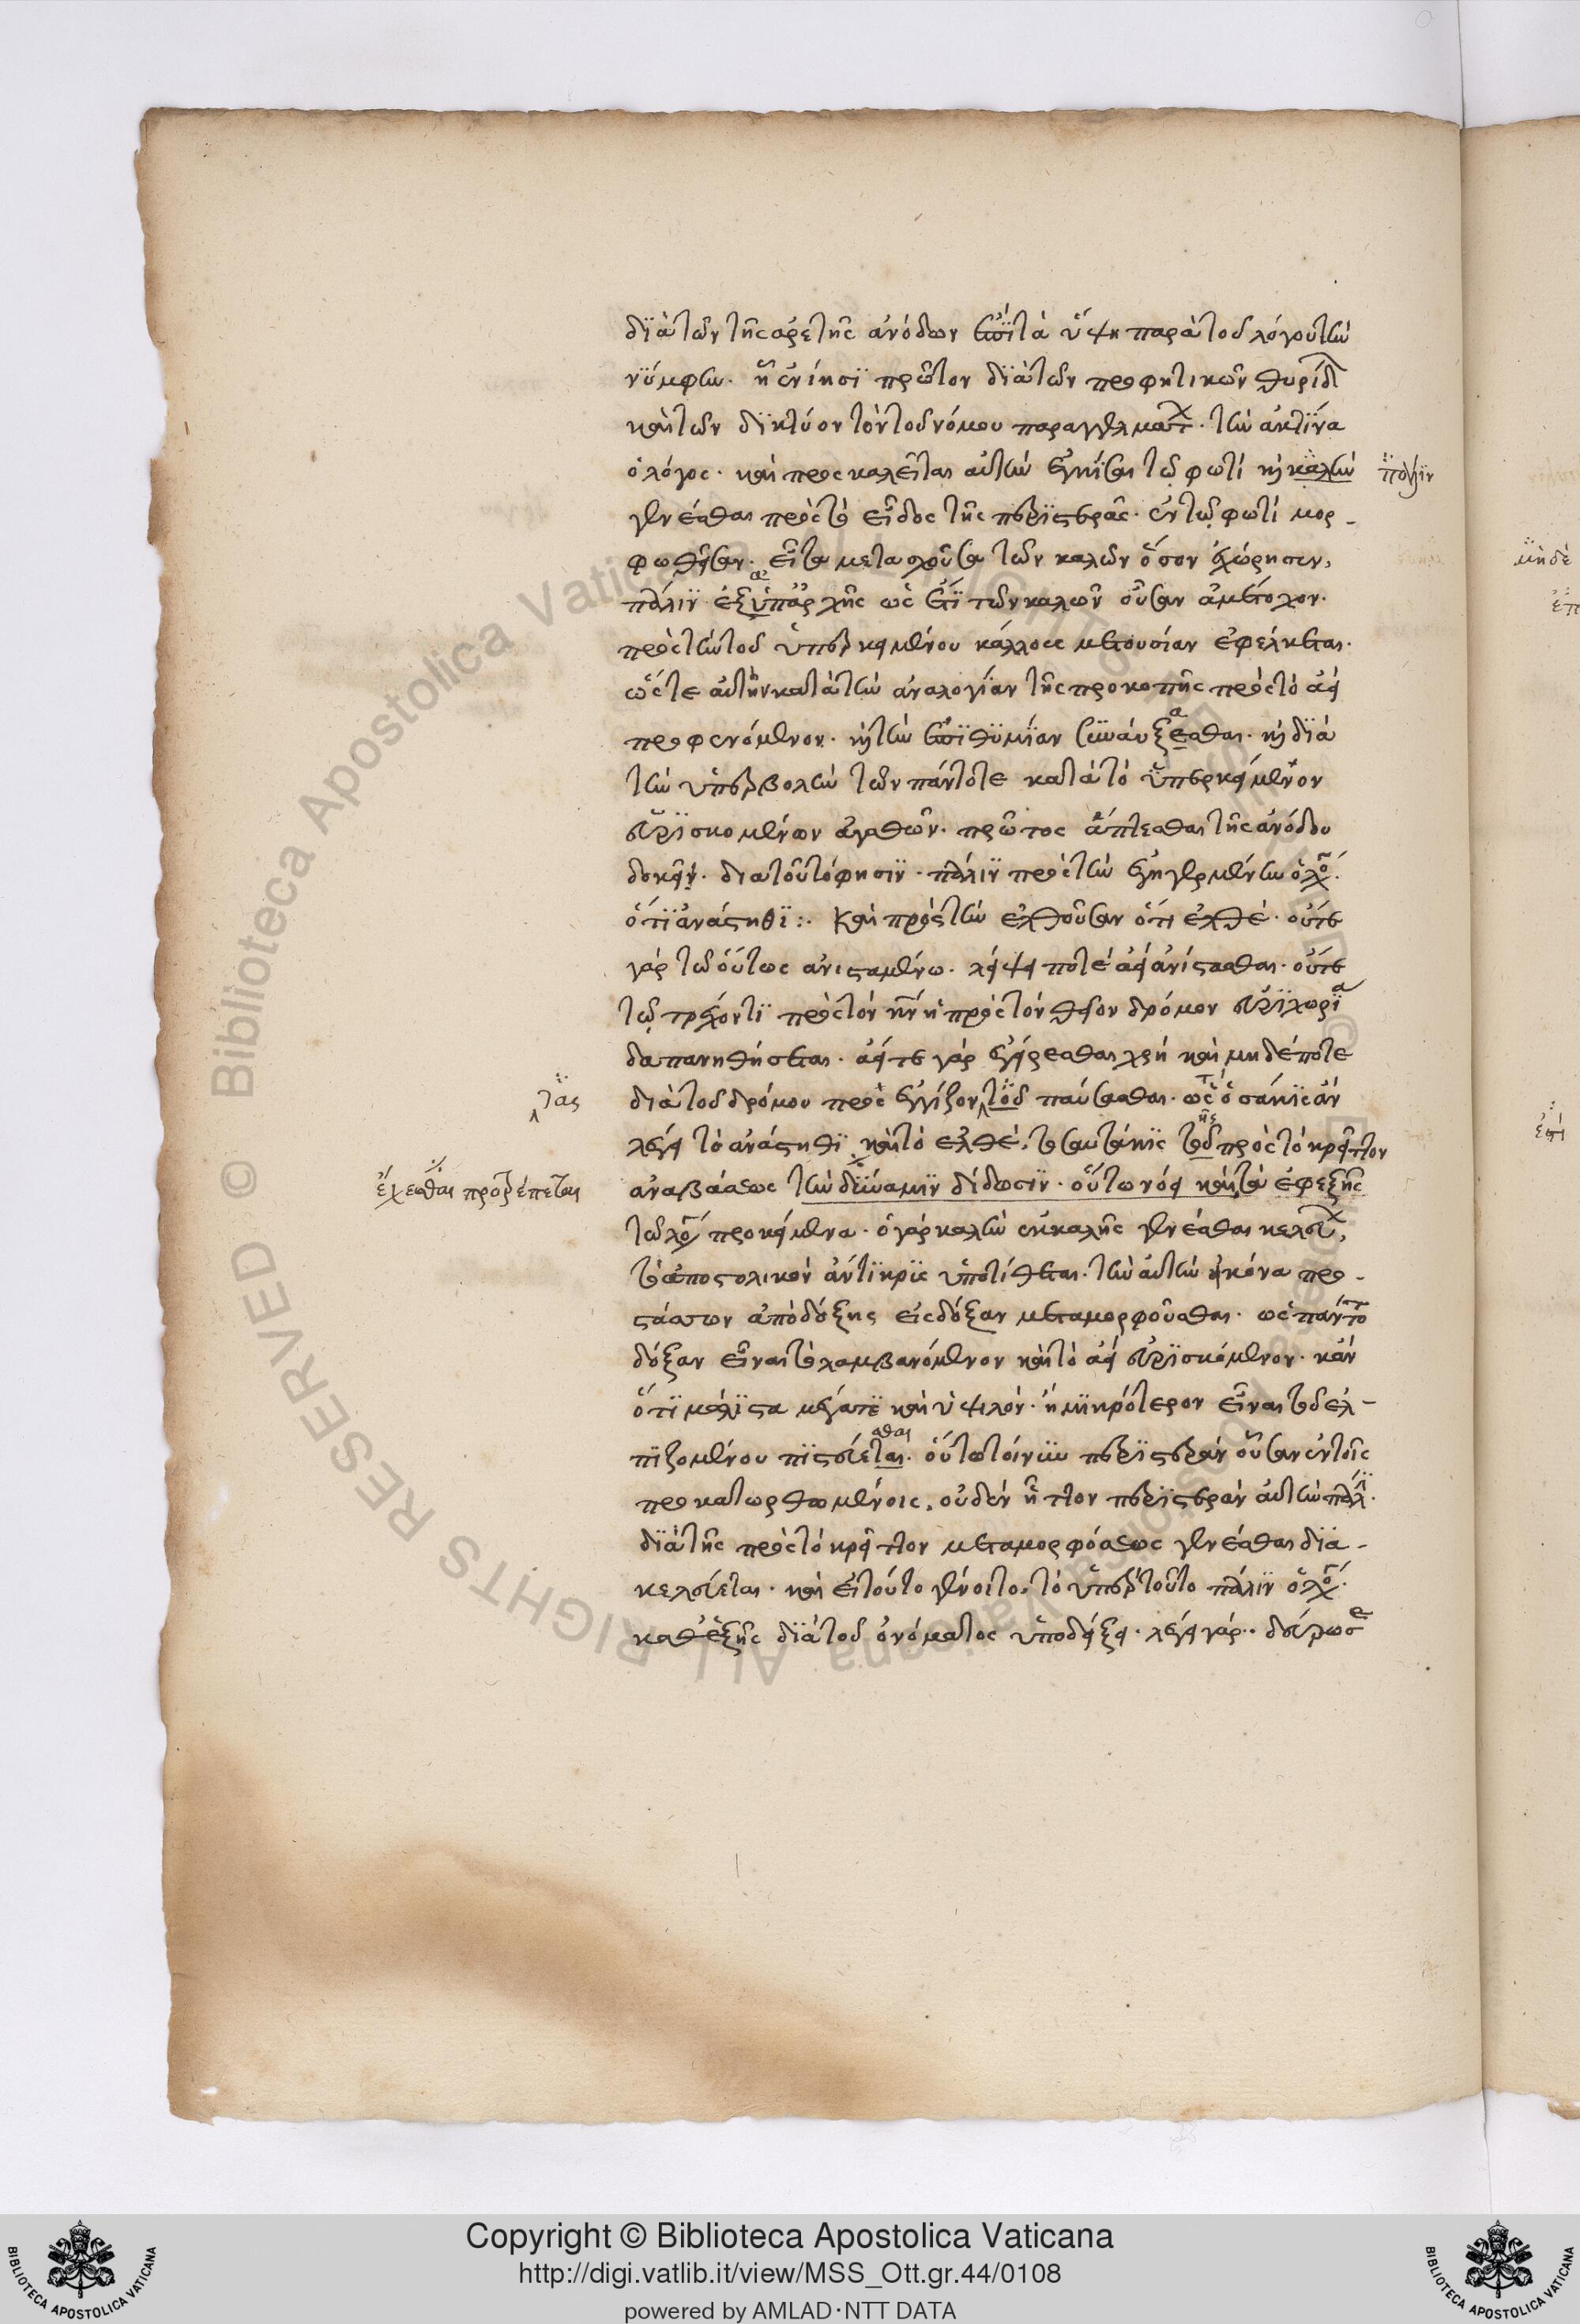 διὰ τῶν τῆς ἀρετῆς ἀνόδων ἐπὶ τὰ ὕψη παρὰ τοῦ λόγου τὴν
νύμφην. ἧ ἐνίησι πρῶτον διὰ τῶν προφητικῶν θυρίδ
καὶ τῶν δικτύον τὸν τοῦ νόμου παραγγελματ. τὴν ἀκτῖνα
ὁ λόγος. καὶ προσκαλεῖται αὐτὴν ἐγγίσαι τῷ φωτί καὶ καλὴν
πάλιν
γενέσθαι πρὸς τὸ εἶδος τῆς περιστερᾶς. ἐν τῷ φωτί μορ-
φωθεῖσαν. εἶτα μετασχοῦσα τῶν καλῶν ὅσον ἐχώρησεν,
πάλιν ἐξ ὑπαρχῆς ὡς ἔτι τῶν καλῶν οὖσαν ἀμέτοχον.
πρὸς τὴν τοῦ ὑπερκειμένου κάλλους μετουσίαν ἐφέλκεται.
ὥστε αὐτὴν κατὰ τὴν ἀναλογίαν τῆς προκοπῆς πρὸς τὸ ἀεὶ
προφαινόμενον. καὶ τὴν ἐπιθυμίαν συναύξεσθαι. καὶ διὰ
τὴν ὑπερβολὴν τῶν πάντοτε κατὰ τὸ ὑπερκείμενον
εὑρισκομένων ἀγαθῶν. πρῶτος ἅπτεσθαι τῆς ἀνόδου
δοκεῖν. διὰ τοῦτό φησιν. πάλιν πρὸς τὴν ἐγηγερμένην ὁ λό.
ὅτι ἀνάστηθι:. καὶ πρὸς τὴν ἐλθοῦσαν ὅτι ἐλθέ. οὔτε
γάρ τῷ οὕτως ἀνισταμένω. λείψει ποτέ ἀεὶ ἀνίστασθαι. οὔτε
τῷ τρέχοντι πρὸς τὸν πρὸς τὸν θεον δρόμον εὐρυχωρία
δαπανηθήσεται. ἀεί τε γὰρ ἐγείρεσθαι χρή καὶ μηδέποτε
τὰς
διὰ τοῦ δρόμου προσεγγίζον τοῦ παύσασθαι. ὥς ὁσάκις ἄν
λέγει τὸ ἀνάστηθι καὶ τὸ ἐλθέ, τοσαυτάκις τοῦ πρὸς τὸ κρεῖττον
ἔχεσθαι προτρέπεται
ἀναβάσεως τὴν δύναμιν δίδωσιν. οὕτω νόει καὶ τὰ ἐφεξῆς
τῷ λό προκείμενα. ὁ γάρ καλὴν ἐκ καλῆς γενέσθαι κελεύ,
τὸ ἀποστολικὸν ἄντικρις ὑποτίθεται. τὴν αὐτὴν εἰκόνα προ-
στάσσων ἀπὸ δόξης εἰς δόξαν μεταμορφοῦσθαι. ὡς πάντο
δόξαν εἶναι τὸ λαμβανόμενον καὶ τὸ ἀεὶ εὑρισκόμενον. κἄν
ὅτι μάλιστα μέγα τε καὶ ὑψιλόν. ἡμικρότερον εἶναι τοῦ ἐλ-
πιζομένου πιστεύεται. οὕτω τοίνυν περιστερὰν οὖσαν ἐν τοῖς
προκατωρθωμένοις, οὐδὲν ἧττον περιστερὰν αὐτὴν πάλ.
διὰ τῆς πρὸς τὸ κρεῖττον μεταμορφόσεως γενέσθαι δια-
κελεύεται. καὶ εἰ τοῦτο γένοιτο, τὸ ὑπὲρ τοῦτο πάλιν ὁ λό.
καθεξῆς διὰ τοῦ ὀνόματος ὑποδείξει. λέγει γάρ.. δεῦρο σ
Copyright © Biblioteca Apostolica Vaticana
http://digi.vatlib.it/view/MSS_Ott.gr.44/0108
powered by AMLAD·NTT DATA